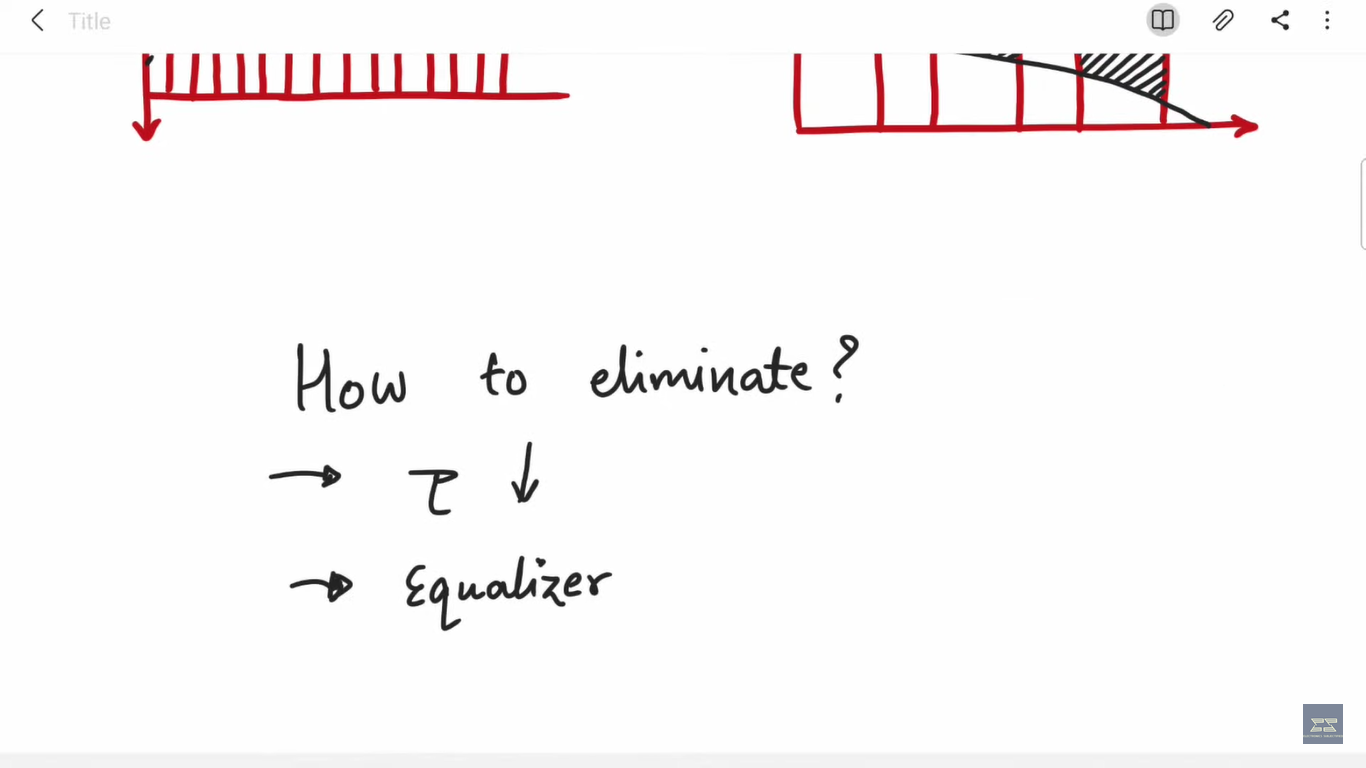 Title
How to eliminate?
→ τ ↓
→ Equalizer